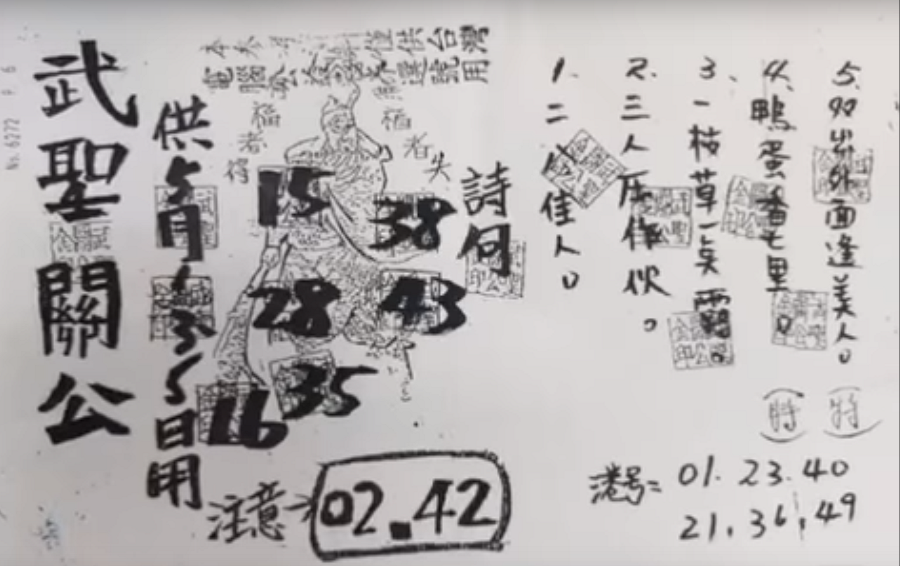 武聖關公
供5月1 3 5日用
台灣
僅供
15
38
28
43
35
16
注意→ 02.42
詩句
1. 二 佳人。
2. 三人 作伙。
3. 一枝草一点露。
4. 鴨蛋香七里。
5. 出外面逢美人。
(特) (特)
港号= 01. 23. 40
21. 36. 49
No. 6272 P. 6